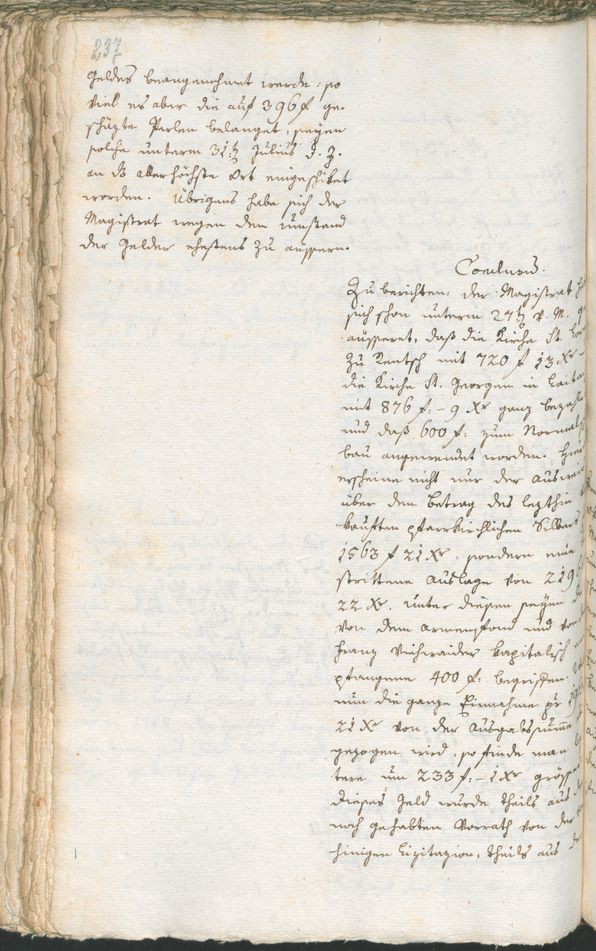 237
Geldes beangenehmet werde, so
viel es aber die auf 396 f ge-
schäzte Perlen belanget, seyen
solche unterm 31t Julius d. J.
an ds allerhöchste Ort eingeschiket
worden. Übrigens habe sich der
Magistrat wegen dem Umstand
der Gelder ehestens zu äussern.
Conclusum.
Zu berichten: der Magistrat
sich schon unterm 27t v. M.
äusseret, daß die Kirche St.
zu Rentsch mit 720 f 13 Xr
die Kirche St. Georgen in
mit 876 f:- 9 Xr ganz
und daß 600 f: zum Normal
bau angewendet worden.
erscheine nicht nur der
über den Betrag des lezthin
kauften pfarrkirchlichen Silbers
1563 f 21 Xr: sondern eine
strittene Auslage von 219
22 Xr. unter diesen seyen
von dem Armenfond und von
Franz kapitalisch
pfangene 400 f: begriffen.
nun die ganze Einnahme pr
21 Xr von der Ausgabssumme
gezogen wird, so finde man
tere um 233 f:- 1 Xr
dieses Geld wurde theils aus
noch gehabten Vorrath von der
hinigen Lizitazion, theils aus